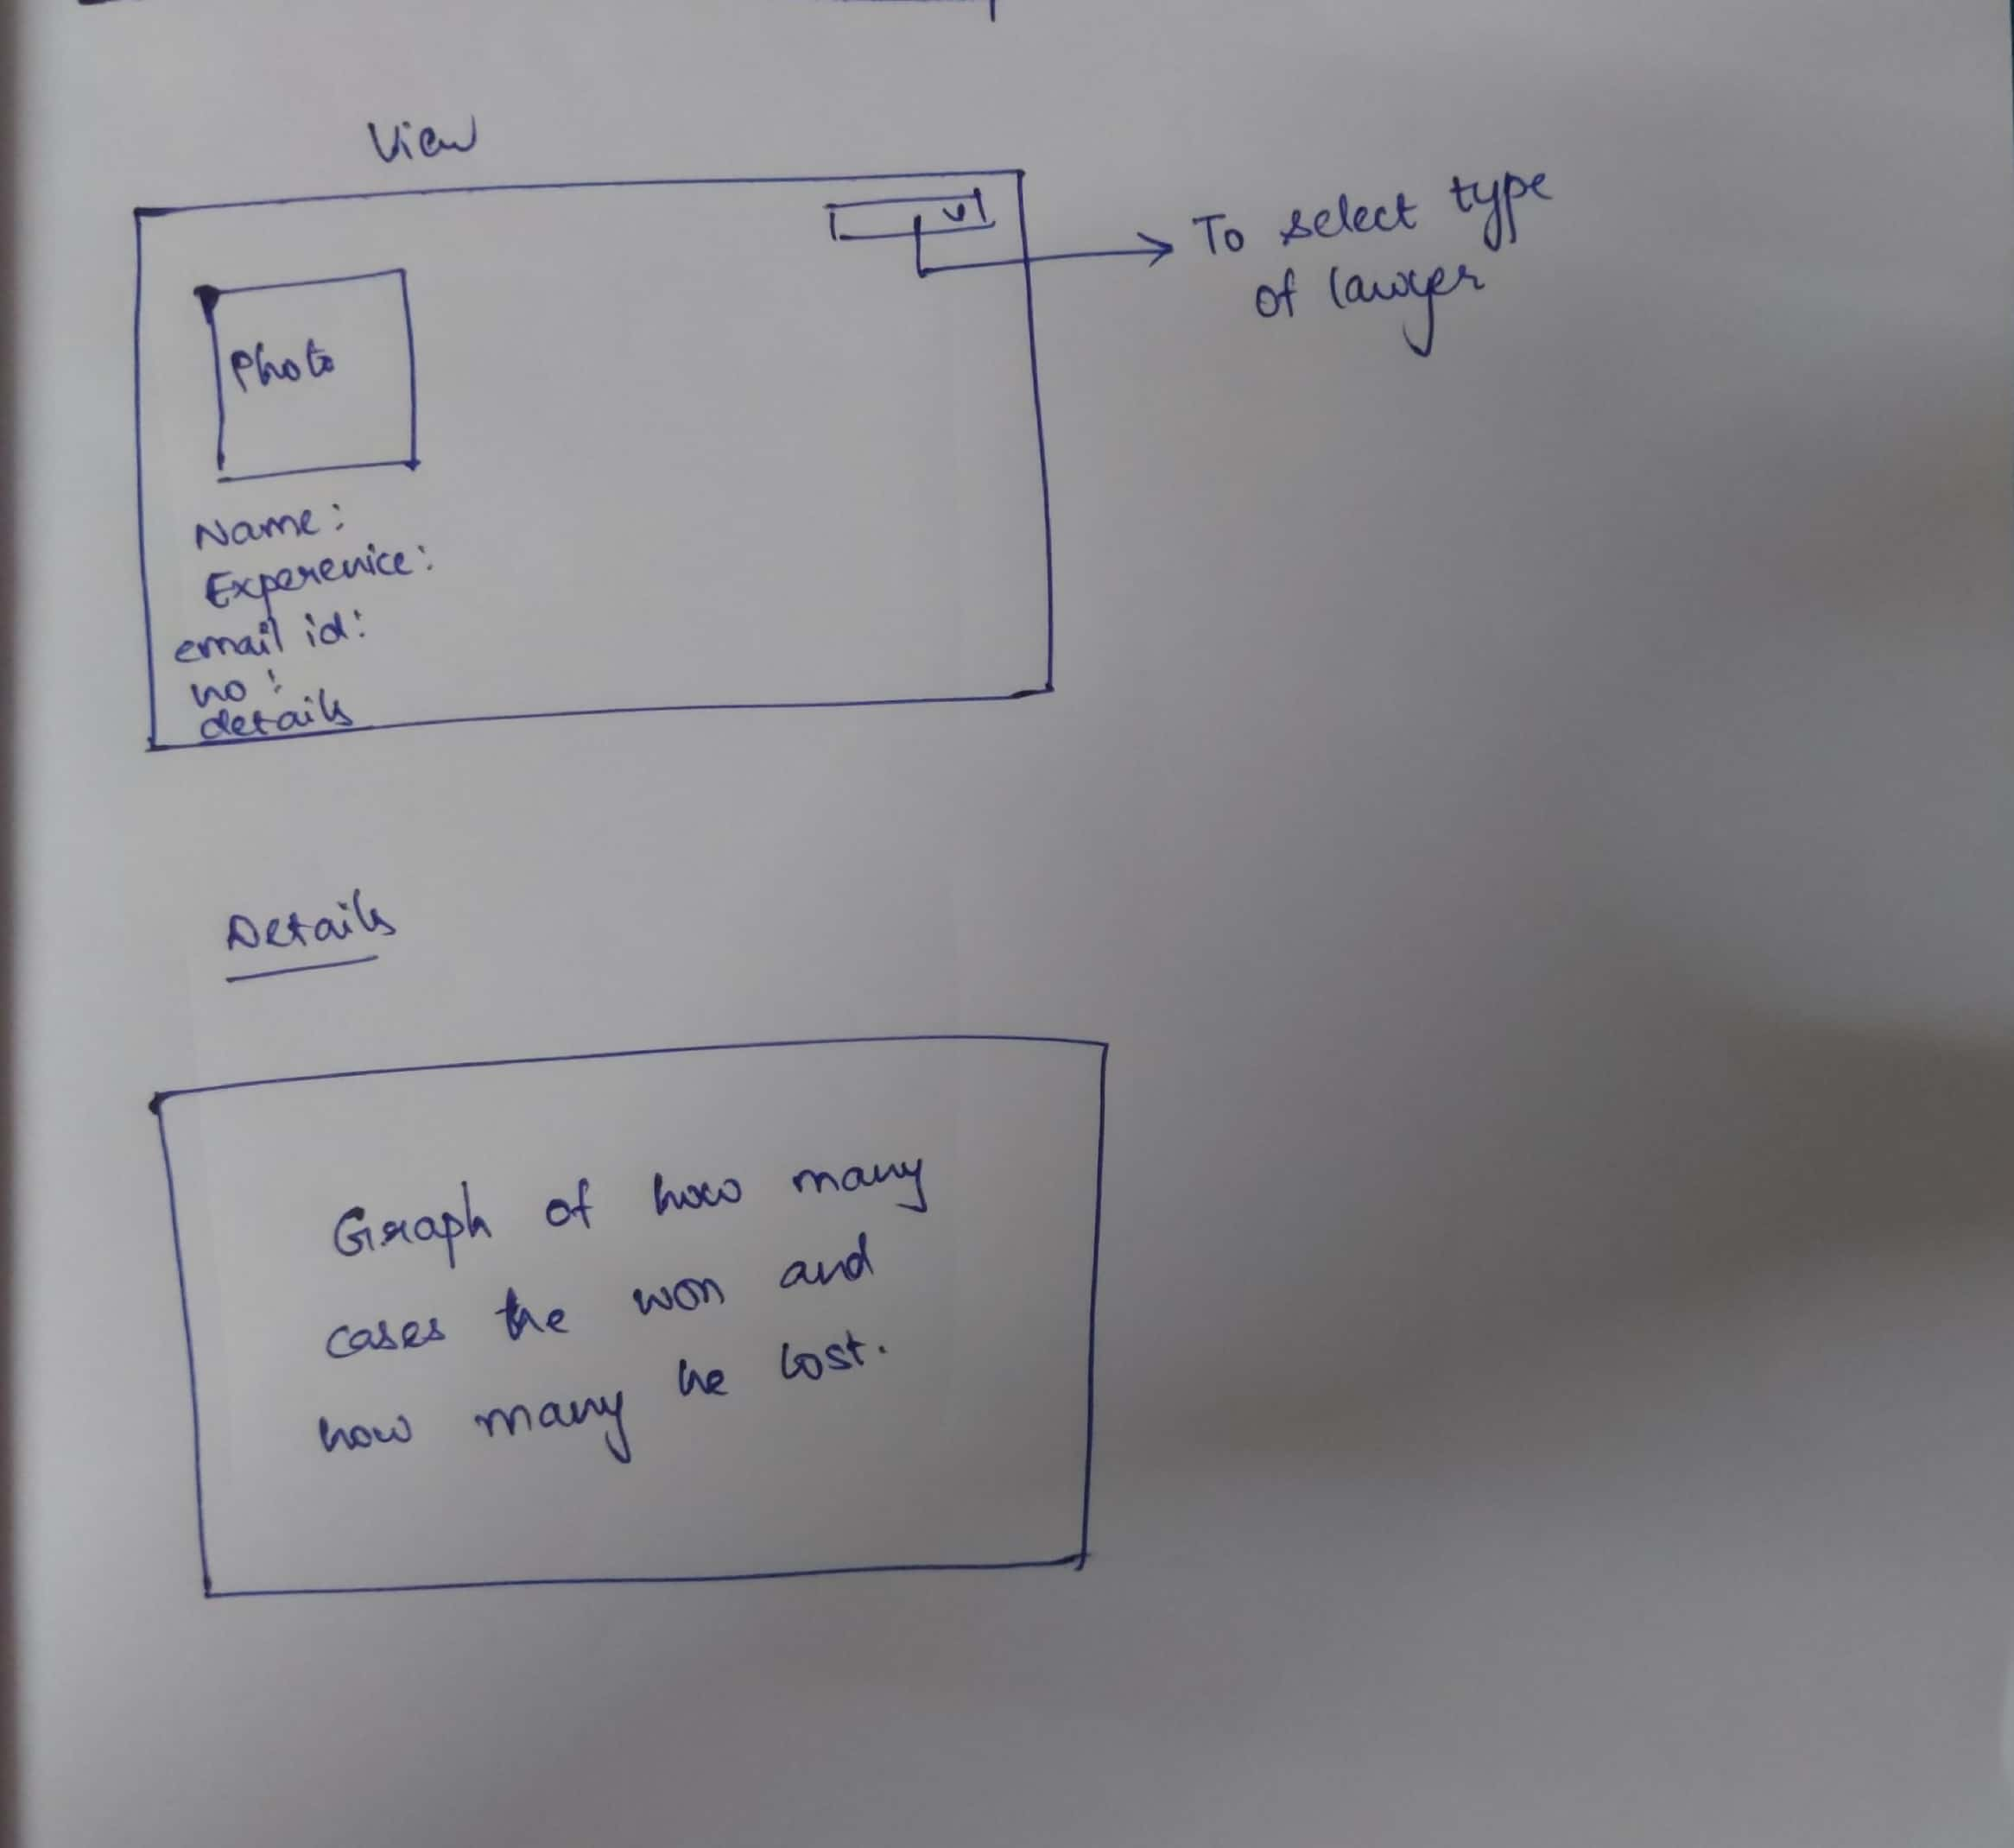 View
To select type
of lawyer
Photo
Name:
Experenice:
email id:
no:
details
Details
Graph of how many
cases the won and
how many he lost.